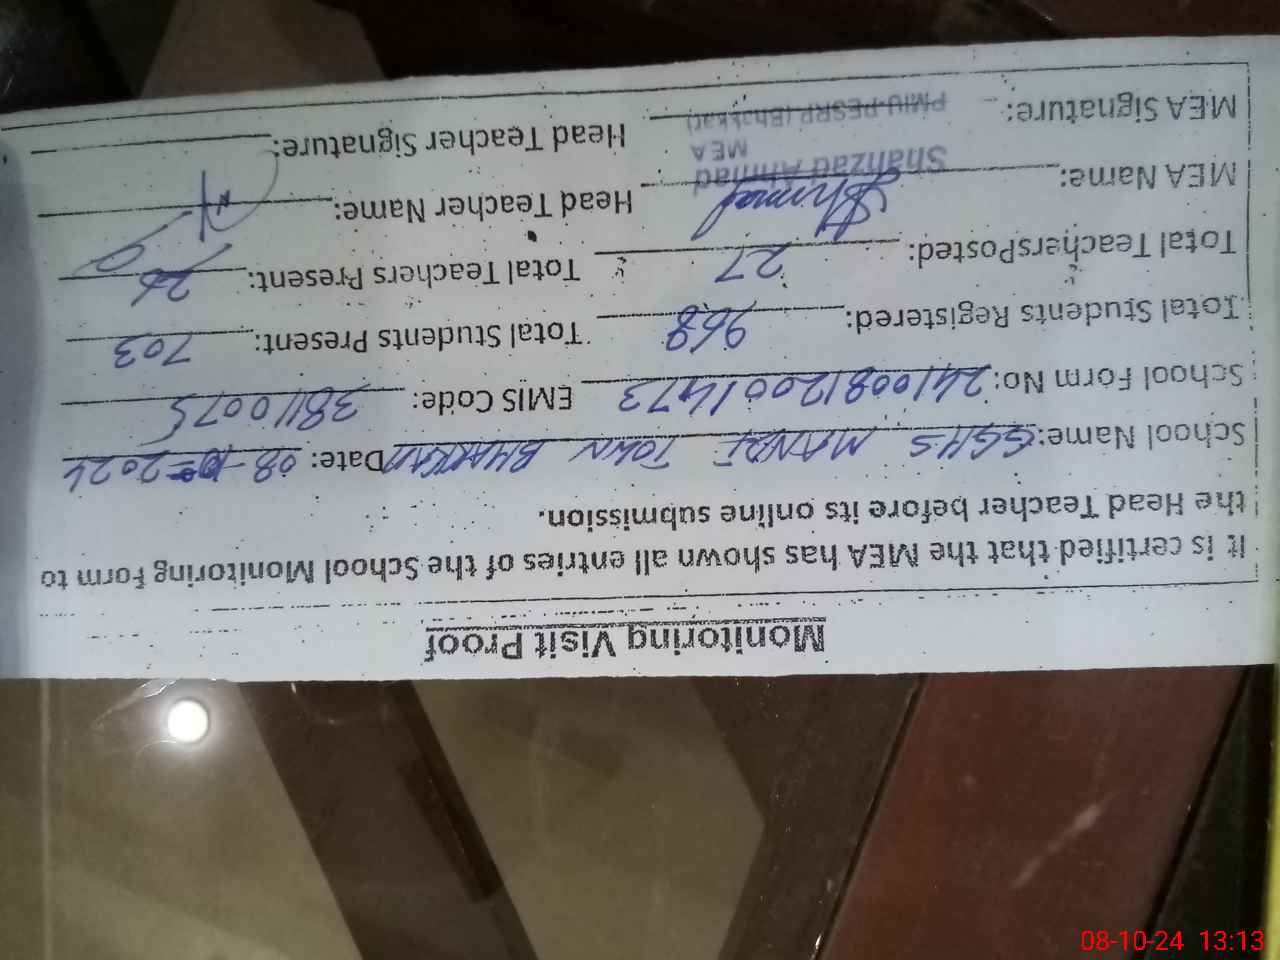 Monitoring Visit Proof
It is certified that the MEA has shown all entries of the School Monitoring Form to
the Head Teacher before its online submission.
School Name: GGHS MANDI TOWN BHAKKAR Date: 08-10-2024
School Form No: 24100812001473 EMIS Code: 38110075
Total Students Registered: 968 Total Students Present: 703
Total TeachersPosted: 27 Total Teachers Present: 26
MEA Name: Shahzad Ahmad Head Teacher Name:
MEA
MEA Signature: PMIU-PESRP (Bhakkar) Head Teacher Signature:
08-10-24 13:13